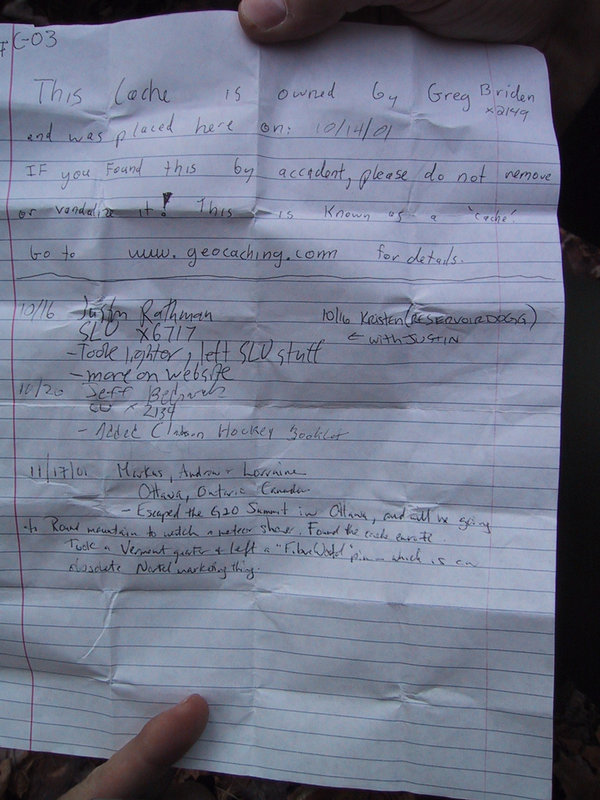 C-03
This Cache is owned by Greg Briden
x2149
and was placed here on: 10/14/01
IF you Found this by accadent, please do not remove
or vandalize it! This is known as a 'cache'.
Go to www.geocaching.com for details.
10/16 Justin Rathman
SLU X6717
-Took lighter, left SLU stuff
-more on website
10/16 Kristen (RESERVOIRDOGG)
← with JUSTIN
10/20 Jeff
x 2134
- Added Hockey Booklet
11/17/01 Markus, Andrew + Lorraine
Ottawa, Ontario Canada
- Escaped the G20 Summit in Ottawa, and will be going
Round mountain to watch a meteor shower. Found the cache enroute.
Took a Vermont quarter & left a "FibreWorld" pin - which is an
obsolete Nortel marketing thing.